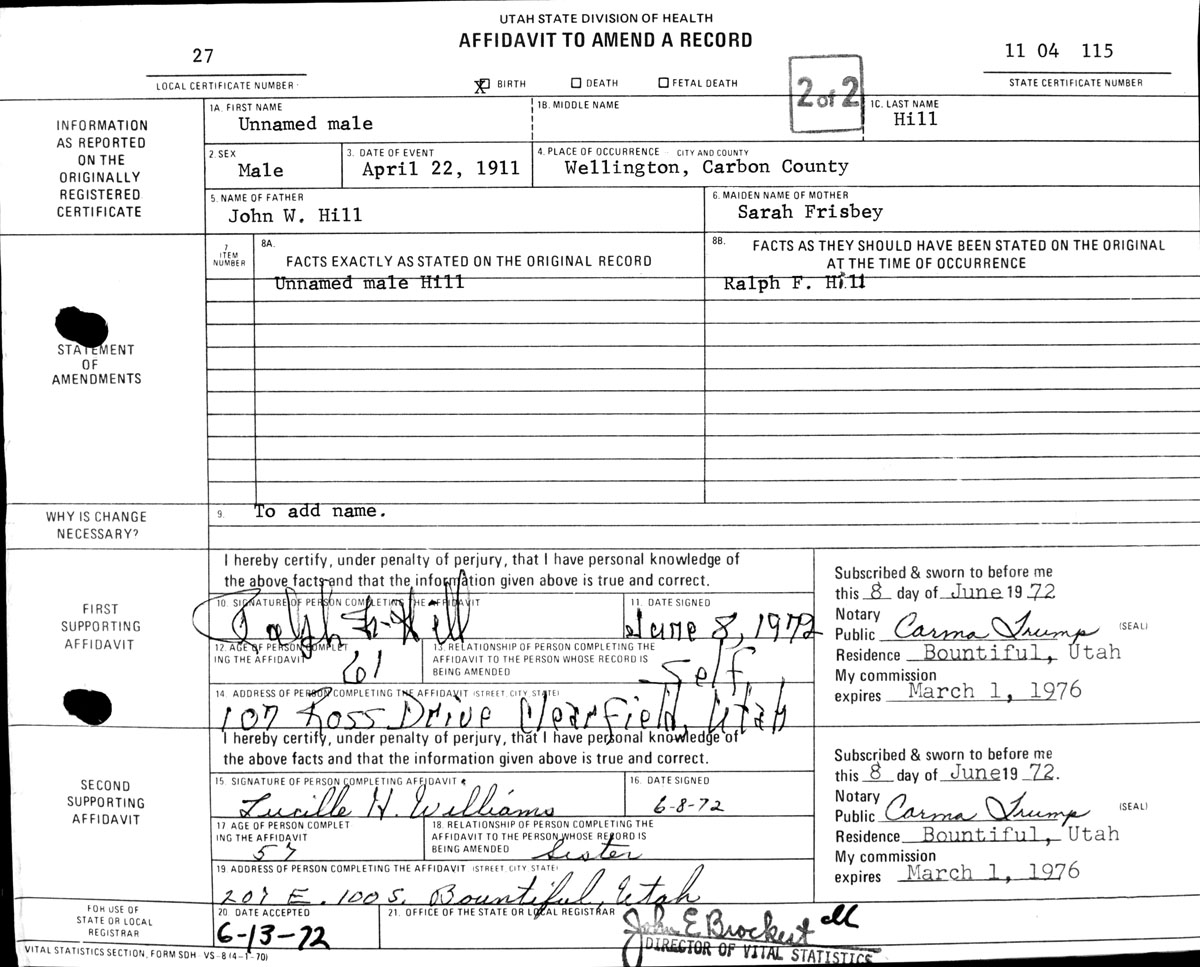 UTAH STATE DIVISION OF HEALTH
AFFIDAVIT TO AMEND A RECORD
27
LOCAL CERTIFICATE NUMBER
X BIRTH
DEATH
FETAL DEATH
2 of 2
11 04 115
STATE CERTIFICATE NUMBER
INFORMATION
AS REPORTED
ON THE
ORIGINALLY
REGISTERED
CERTIFICATE
1A. FIRST NAME
Unnamed male
1B. MIDDLE NAME
1C. LAST NAME
Hill
2. SEX
Male
3. DATE OF EVENT
April 22, 1911
4. PLACE OF OCCURRENCE - CITY AND COUNTY
Wellington, Carbon County
5. NAME OF FATHER
John W. Hill
6. MAIDEN NAME OF MOTHER
Sarah Frisbey
STATEMENT
OF
AMENDMENTS
7
ITEM
NUMBER
8A.
FACTS EXACTLY AS STATED ON THE ORIGINAL RECORD
Unnamed male Hill
8B.
FACTS AS THEY SHOULD HAVE BEEN STATED ON THE ORIGINAL
AT THE TIME OF OCCURRENCE
Ralph F. Hill
WHY IS CHANGE
NECESSARY?
9. To add name.
FIRST
SUPPORTING
AFFIDAVIT
I hereby certify, under penalty of perjury, that I have personal knowledge of
the above facts and that the information given above is true and correct.
10. SIGNATURE OF PERSON COMPLETING THE AFFIDAVIT
Ralph F. Hill
11. DATE SIGNED
June 8, 1972
12. AGE OF PERSON COMPLET
ING THE AFFIDAVIT
61
13. RELATIONSHIP OF PERSON COMPLETING THE
AFFIDAVIT TO THE PERSON WHOSE RECORD IS
BEING AMENDED
Self
14. ADDRESS OF PERSON COMPLETING THE AFFIDAVIT (STREET, CITY, STATE)
107 Ross Drive Clearfield, Utah
Subscribed & sworn to before me
this 8 day of June 19 72
Notary
Public Carma Trump (SEAL)
Residence Bountiful, Utah
My commission
expires March 1, 1976
SECOND
SUPPORTING
AFFIDAVIT
I hereby certify, under penalty of perjury, that I have personal knowledge of
the above facts and that the information given above is true and correct.
15. SIGNATURE OF PERSON COMPLETING AFFIDAVIT
Lucille H. Williams
16. DATE SIGNED
6-8-72
17 AGE OF PERSON COMPLET
ING THE AFFIDAVIT
57
18. RELATIONSHIP OF PERSON COMPLETING THE
AFFIDAVIT TO THE PERSON WHOSE RECORD IS
BEING AMENDED
Sister
19 ADDRESS OF PERSON COMPLETING THE AFFIDAVIT (STREET, CITY, STATE)
207 E. 100 S. Bountiful, Utah
Subscribed & sworn to before me
this 8 day of June 19 72.
Notary
Public Carma Trump (SEAL)
Residence Bountiful, Utah
My commission
expires March 1, 1976
FOR USE OF
STATE OR LOCAL
REGISTRAR
20 DATE ACCEPTED
6-13-72
21. OFFICE OF THE STATE OR LOCAL REGISTRAR
John E Brockert
DIRECTOR OF VITAL STATISTICS
VITAL STATISTICS SECTION, FORM SDH VS-8 (4-1-70)